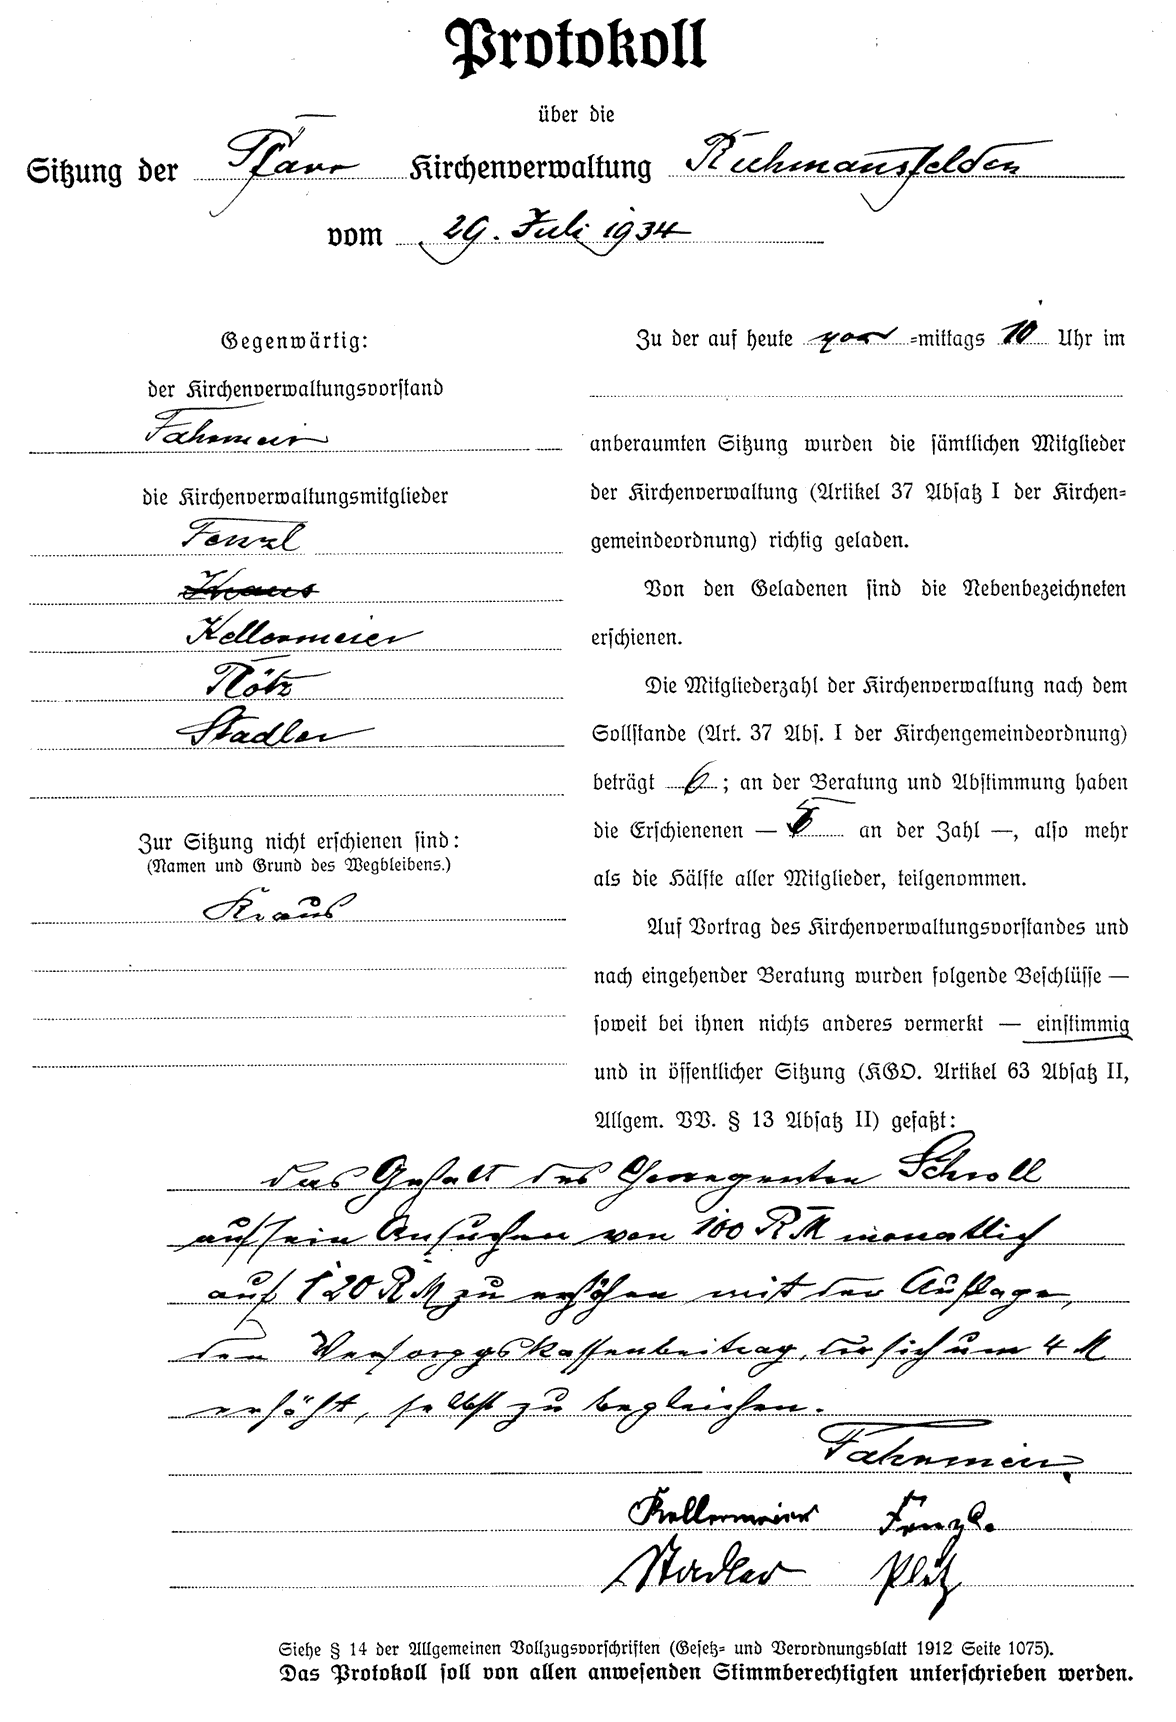 Protokoll
über die
Sitzung der Pfarr Kirchenverwaltung Ruhmannsfelden
vom 29. Juli 1934
Gegenwärtig:
der Kirchenverwaltungsvorstand
Fahrmeier
die Kirchenverwaltungsmitglieder
Fenzl
Kraus
Kellermeier
Plötz
Stadler
Zur Sitzung nicht erschienen sind:
(Namen und Grund des Wegbleibens.)
Kraus
Zu der auf heute vor =mittags 10 Uhr im
anberaumten Sitzung wurden die sämtlichen Mitglieder
der Kirchenverwaltung (Artikel 37 Absatz I der Kirchen=
gemeindeordnung) richtig geladen.
Von den Geladenen sind die Nebenbezeichneten
erschienen.
Die Mitgliederzahl der Kirchenverwaltung nach dem
Sollstande (Art. 37 Abs. I der Kirchengemeindeordnung)
beträgt 6; an der Beratung und Abstimmung haben
die Erschienenen — 5 an der Zahl —, also mehr
als die Hälfte aller Mitglieder, teilgenommen.
Auf Vortrag des Kirchenverwaltungsvorstandes und
nach eingehender Beratung wurden folgende Beschlüsse —
soweit bei ihnen nichts anderes vermerkt — einstimmig
und in öffentlicher Sitzung (KGO. Artikel 63 Absatz II,
Allgem. VV. § 13 Absatz II) gefaßt:
das Gehalt des Chorregenten Schroll
auf sein Ansuchen von 100 RM monatlich
auf 120 RM zu erhöhen mit der Auflage,
den Versorggskassenbeitrag, der sich um 4 M
erhöht, selbst zu begleichen.
Fahrmeier
Kellermeier Fenzl.
Stadler Plötz
Siehe § 14 der Allgemeinen Vollzugsvorschriften (Gesetz= und Verordnungsblatt 1912 Seite 1075).
Das Protokoll soll von allen anwesenden Stimmberechtigten unterschrieben werden.